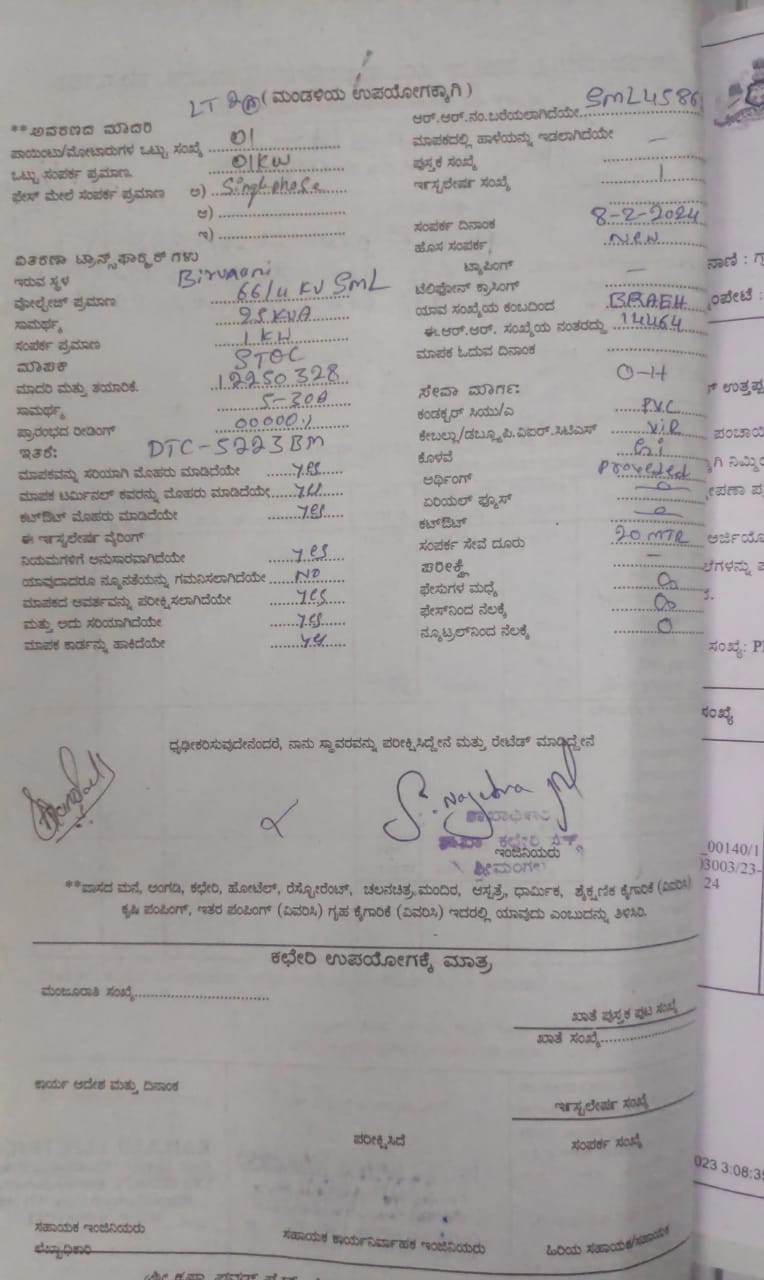 LT 2a (ಮಂಡಳಿಯ ಉಪಯೋಗಕ್ಕಾಗಿ)
**ಅವರಣದ ಮಾದರಿ
ಪಾಯಿಂಟು/ಮೋಟಾರುಗಳ ಒಟ್ಟು ಸಂಖ್ಯೆ 01
ಒಟ್ಟು ಸಂಪರ್ಕ ಪ್ರಮಾಣ 01KW
ಫೇಸ್ ಮೇಲೆ ಸಂಪರ್ಕ ಪ್ರಮಾಣ ಅ)
ಆ)
ಇ)
ವಿತರಣಾ ಟ್ರಾನ್ಸ್‌ಫಾರ್‍ಮರ್ ಗಳು
ಇರುವ ಸ್ಥಳ Birunani
ವೋಲ್ಟೇಜ್ ಪ್ರಮಾಣ 66/11 KV SML
ಸಾಮರ್ಥ್ಯ 25KVA
ಸಂಪರ್ಕ ಪ್ರಮಾಣ 1 KW
ಮಾಪಕ STOC
ಮಾದರಿ ಮತ್ತು ತಯಾರಿಕೆ. 12250328
ಸಾಮರ್ಥ್ಯ 5-30A
ಪ್ರಾರಂಭದ ರೀಡಿಂಗ್ 00000.1
ಇತರೆ: DTC-5223BM
ಮಾಪಕವನ್ನು ಸರಿಯಾಗಿ ಮೊಹರು ಮಾಡಿದೆಯೇ yes
ಮಾಪಕ ಟರ್ಮಿನಲ್ ಕವರನ್ನು ಮೊಹರು ಮಾಡಿದೆಯೇ yes
ಕಟ್‌ಔಟ್ ಮೊಹರು ಮಾಡಿದೆಯೇ yes
ಈ ಇನ್ಸ್ಟಲೇಷರ್ ವೈರಿಂಗ್
ನಿಯಮಗಳಿಗೆ ಅನುಸಾರವಾಗಿದೆಯೇ yes
ಯಾವುದಾದರೂ ನ್ಯೂನತೆಯನ್ನು ಗಮನಿಸಲಾಗಿದೆಯೇ NO
ಮಾಪಕದ ಅವರ್ತವನ್ನು ಪರೀಕ್ಷಿಸಲಾಗಿದೆಯೇ yes
ಮತ್ತು ಅದು ಸರಿಯಾಗಿದೆಯೇ yes
ಮಾಪಕ ಕಾರ್ಡನ್ನು ಹಾಕಿದೆಯೇ yes
ಆರ್.ಆರ್.ನಂ.ಬರೆಯಲಾಗಿದೆಯೇ SML4586
ಮಾಪಕದಲ್ಲಿ ಹಾಳೆಯನ್ನು ಇಡಲಾಗಿದೆಯೇ —
ಪುಸ್ತಕ ಸಂಖ್ಯೆ
ಇನ್ಸ್ಟಲೇಷರ್ ಸಂಖ್ಯೆ 1
ಸಂಪರ್ಕ ದಿನಾಂಕ 8-2-2024
ಹೊಸ ಸಂಪರ್ಕ New
ಟ್ಯಾಪಿಂಗ್
ಟೆಲಿಫೋನ್ ಕ್ರಾಸಿಂಗ್ —
ಯಾವ ಸಂಖ್ಯೆಯ ಕಂಬದಿಂದ BRAEH
ಈ.ಆರ್.ಆರ್. ಸಂಖ್ಯೆಯ ನಂತರದ್ದು 14464
ಮಾಪಕ ಓದುವ ದಿನಾಂಕ
ಸೇವಾ ಮಾರ್ಗ: O-H
ಕಂಡಕ್ಟರ್ ಸಿಯು/ಎ P.V.C
ಕೇಬಲ್ಲು/ಡಬ್ಲ್ಯೂಪಿ.ವಿಐಆರ್.ಸಿಟಿಎಸ್ ViR
ಕೊಳವೆ Gi
ಅರ್ಥಿಂಗ್ Proveted
ಏರಿಯಲ್ ಫ್ಯೂಸ್
ಕಟ್‌ಔಟ್
ಸಂಪರ್ಕ ಸೇವೆ ದೂರು 20 MTR
ಪರೀಕ್ಷೆ —
ಫೇಸುಗಳ ಮಧ್ಯೆ ∞
ಫೇಸ್‌ನಿಂದ ನೆಲಕ್ಕೆ ∞
ನ್ಯೂಟ್ರಲ್‌ನಿಂದ ನೆಲಕ್ಕೆ 0
ಧೃಢೀಕರಿಸುವುದೇನೆಂದರೆ, ನಾನು ಸ್ಥಾವರವನ್ನು ಪರೀಕ್ಷಿಸಿದ್ದೇನೆ ಮತ್ತು ರೇಟೆಡ್ ಮಾಡಿದ್ದೇನೆ
ಶಾಖಾಧಿಕಾರಿ
ಶಾಖಾ ಕಛೇರಿ
ಇಂಜಿನಿಯರು
ಶ್ರೀಮಂಗಲ
**ವಾಸದ ಮನೆ, ಅಂಗಡಿ, ಕಛೇರಿ, ಹೋಟೆಲ್, ರೆಸ್ಟೋರೆಂಟ್, ಚಲನಚಿತ್ರ ಮಂದಿರ, ಆಸ್ಪತ್ರೆ, ಧಾರ್ಮಿಕ, ಶೈಕ್ಷಣಿಕ ಕೈಗಾರಿಕೆ (ವಿವರಿಸಿ)
ಕೃಷಿ ಪಂಪಿಂಗ್, ಇತರ ಪಂಪಿಂಗ್ (ವಿವರಿಸಿ) ಗೃಹ ಕೈಗಾರಿಕೆ (ವಿವರಿಸಿ) ಇದರಲ್ಲಿ ಯಾವುದು ಎಂಬುದನ್ನು ತಿಳಿಸಿರಿ.
ಕಛೇರಿ ಉಪಯೋಗಕ್ಕೆ ಮಾತ್ರ
ಮಂಜೂರಾತಿ ಸಂಖ್ಯೆ
ಖಾತೆ ಪುಸ್ತಕ ಪುಟ ಸಂಖ್ಯೆ
ಖಾತೆ ಸಂಖ್ಯೆ
ಕಾರ್ಯ ಆದೇಶ ಮತ್ತು ದಿನಾಂಕ
ಇನ್ಸ್ಟಲೇರ್ಷ ಸಂಖ್ಯೆ
ಪರೀಕ್ಷಿಸಿದೆ
ಸಂಪರ್ಕ ಸಂಖ್ಯೆ
ಸಹಾಯಕ ಇಂಜಿನಿಯರು
ಲೆಖ್ಖಾಧಿಕಾರಿ
ಸಹಾಯಕ ಕಾರ್ಯನಿರ್ವಾಹಕ ಇಂಜಿನಿಯರು
ಹಿರಿಯ ಸಹಾಯಕ/ಸಹಾಯಕ
_00140/1
03003/23-
24
023 3:08:35